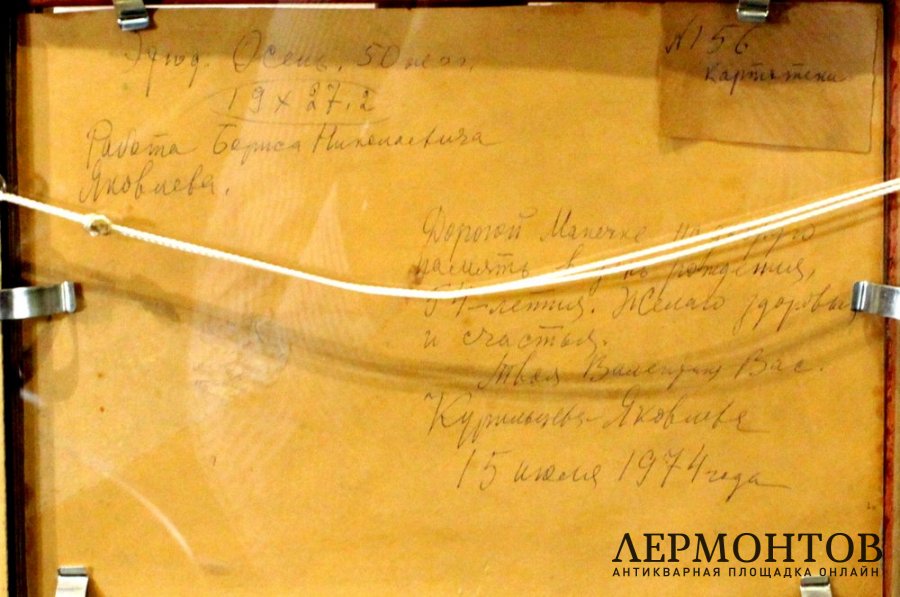 Этюд. Осень. 50 
19 x 27,2
Работа Бориса Николаевича
Яковлева.
№ 156
Картотеки
Дорогой Манечке на добрую
память в день рождения,
54-летия. Желаю здоровья
и счастья.
Твоя Валентина Вас.
Яковлева
15 июля 1974 года
ЛЕРМОНТОВ
АНТИКВАРНАЯ ПЛОЩАДКА ОНЛАЙН